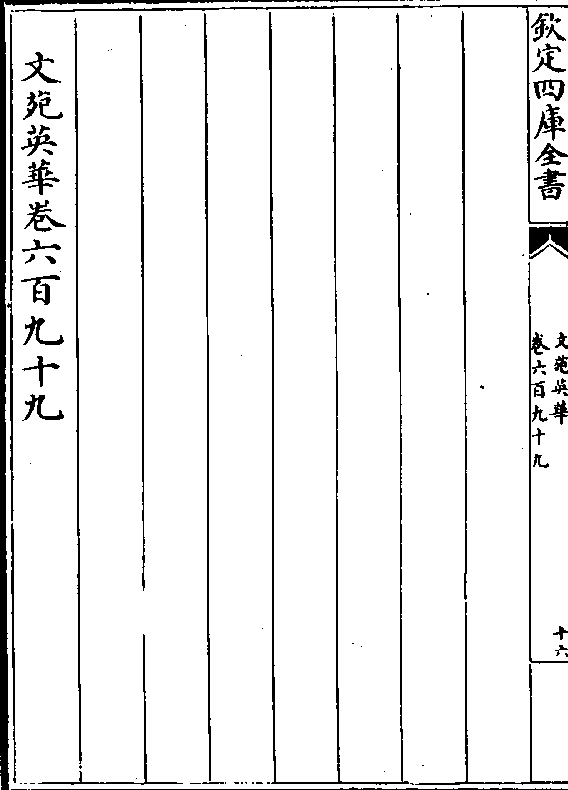 欽定四庫全書
文苑英華
卷六百九十九
十六
文苑英華卷六百九十九